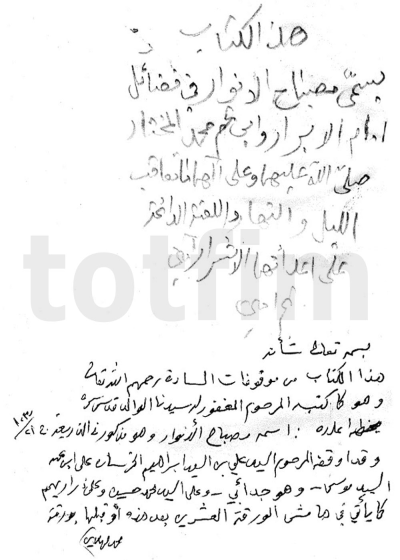 هذا الكتاب
يسمى مصباح الانوار في فضائل
امام الابرار وابن عم محمد المختار
صلى الله عليهما وعلى آلهما ما تعاقب
الليل والنهار واللعنة الدائمة
على اعدائهما الاشرار
totfim
بسمه تعالى شأنه
هذا الكتاب من موقوفات السادة رحمهم الله تعالى
وهو كما كتبه المرحوم المغفور له سيدنا الوالد قدس سره
بخطه اعلاه : اسمه مصباح الأنوار وهو مذكور في الذريعة ج ٢١/١٠٣
وقد اوقفه المرحوم السيد علي بن السيد ابراهيم الخرسان على ابن عمه
السيد موسى - وهو جد أبي - وعلى السيد محمد حسين وعلى ذراريهم
كما يأتي في هامش الورقة العشرين بعد هذه أو قبلها بورقة